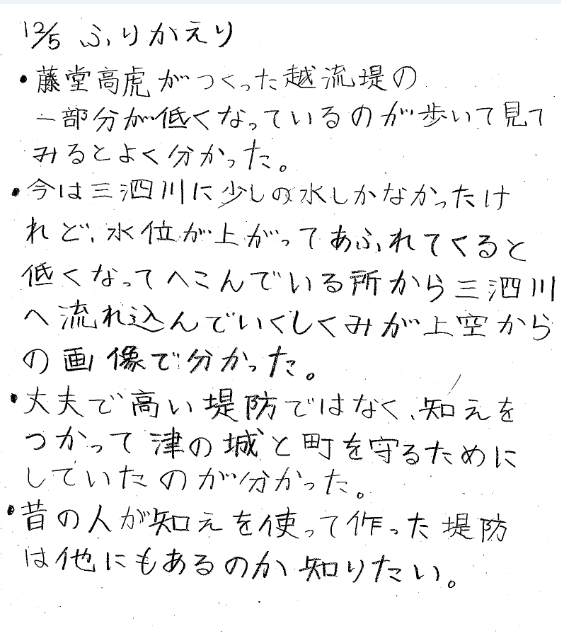 12/5 ふりかえり
・藤堂高虎がつくった越流堤の
一部分が低くなっているのが歩いて見て
みるとよく分かった。
・今は三泗川に少しの水しかなかったけ
れど、水位が上がってあふれてくると
低くなってへこんでいる所から三泗川
へ流れ込んでいくしくみが上空から
の画像で分かった。
・丈夫で高い堤防ではなく、知えを
つかって津の城と町を守るために
していたのが分かった。
・昔の人が知えを使って作った堤防
は他にもあるのか知りたい。